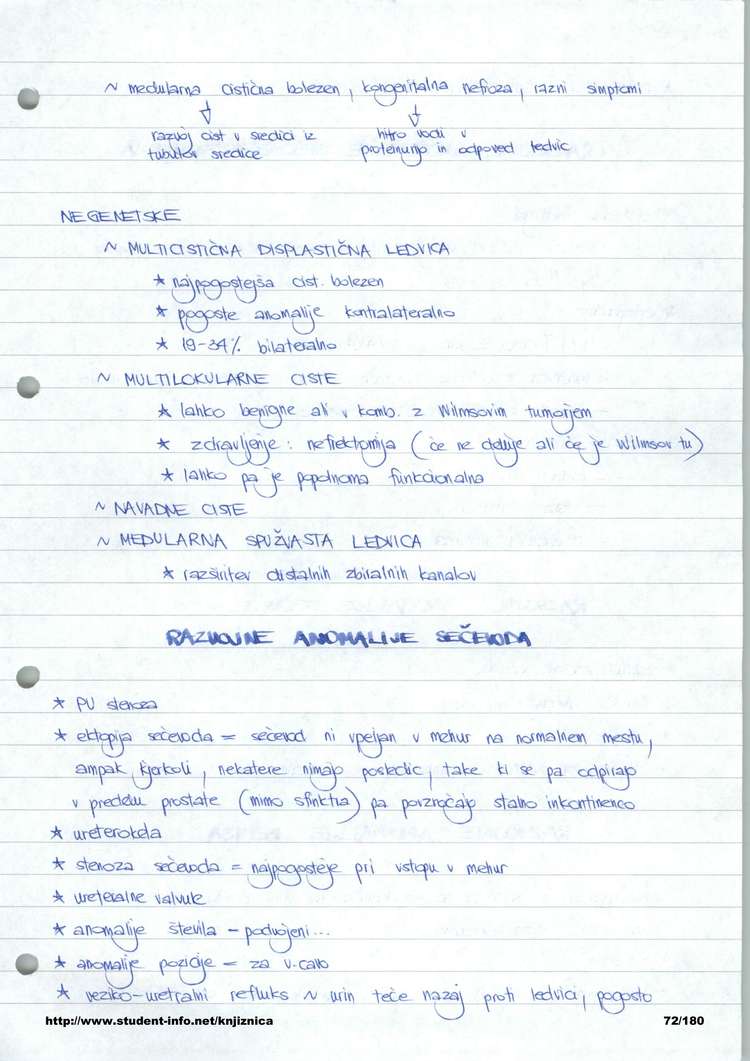 ~ medularna cistična bolezen, kongenitalna nefroza, razni simptomi
razvoj cist v sredici iz
tubulov sredice
hitro vodi v
proteinurijo in odpoved ledvic
NEGENETSKE
~ MULTICISTIČNA DISPLASTIČNA LEDVICA
* najpogostejša cist. bolezen
* pogoste anomalije kontralateralno
* 19-34% bilateralno
~ MULTILOKULARNE CISTE
* lahko benigne ali v komb. z Wilmsovim tumorjem
* zdravljenje: nefrektomija (če ne deluje ali če je Wilmsov tu)
* lahko pa je popolnoma funkcionalna
~ NAVADNE CISTE
~ MEDULARNA SPUŽVASTA LEDVICA
* razširitev distalnih zbiralnih kanalov
RAZVOJNE ANOMALIJE SEČEVODA
* PU stenoza
* ektopija sečevoda = sečevod ni vpeljan v mehur na normalnem mestu,
ampak kjerkoli, nekatere nimajo posledic, take ki se pa odpirajo
v predelu prostate (mimo sfinktra) pa povzročajo stalno inkontinenco
* ureterokela
* stenoza sečevoda = najpogosteje pri vstopu v mehur
* ureteralne valvule
* anomalije števila - podvojeni...
* anomalije pozicije - za v.cavo
* veziko-uretralni refluks ~ urin teče nazaj proti ledvici, pogosto
http://www.student-info.net/knjiznica 72/180